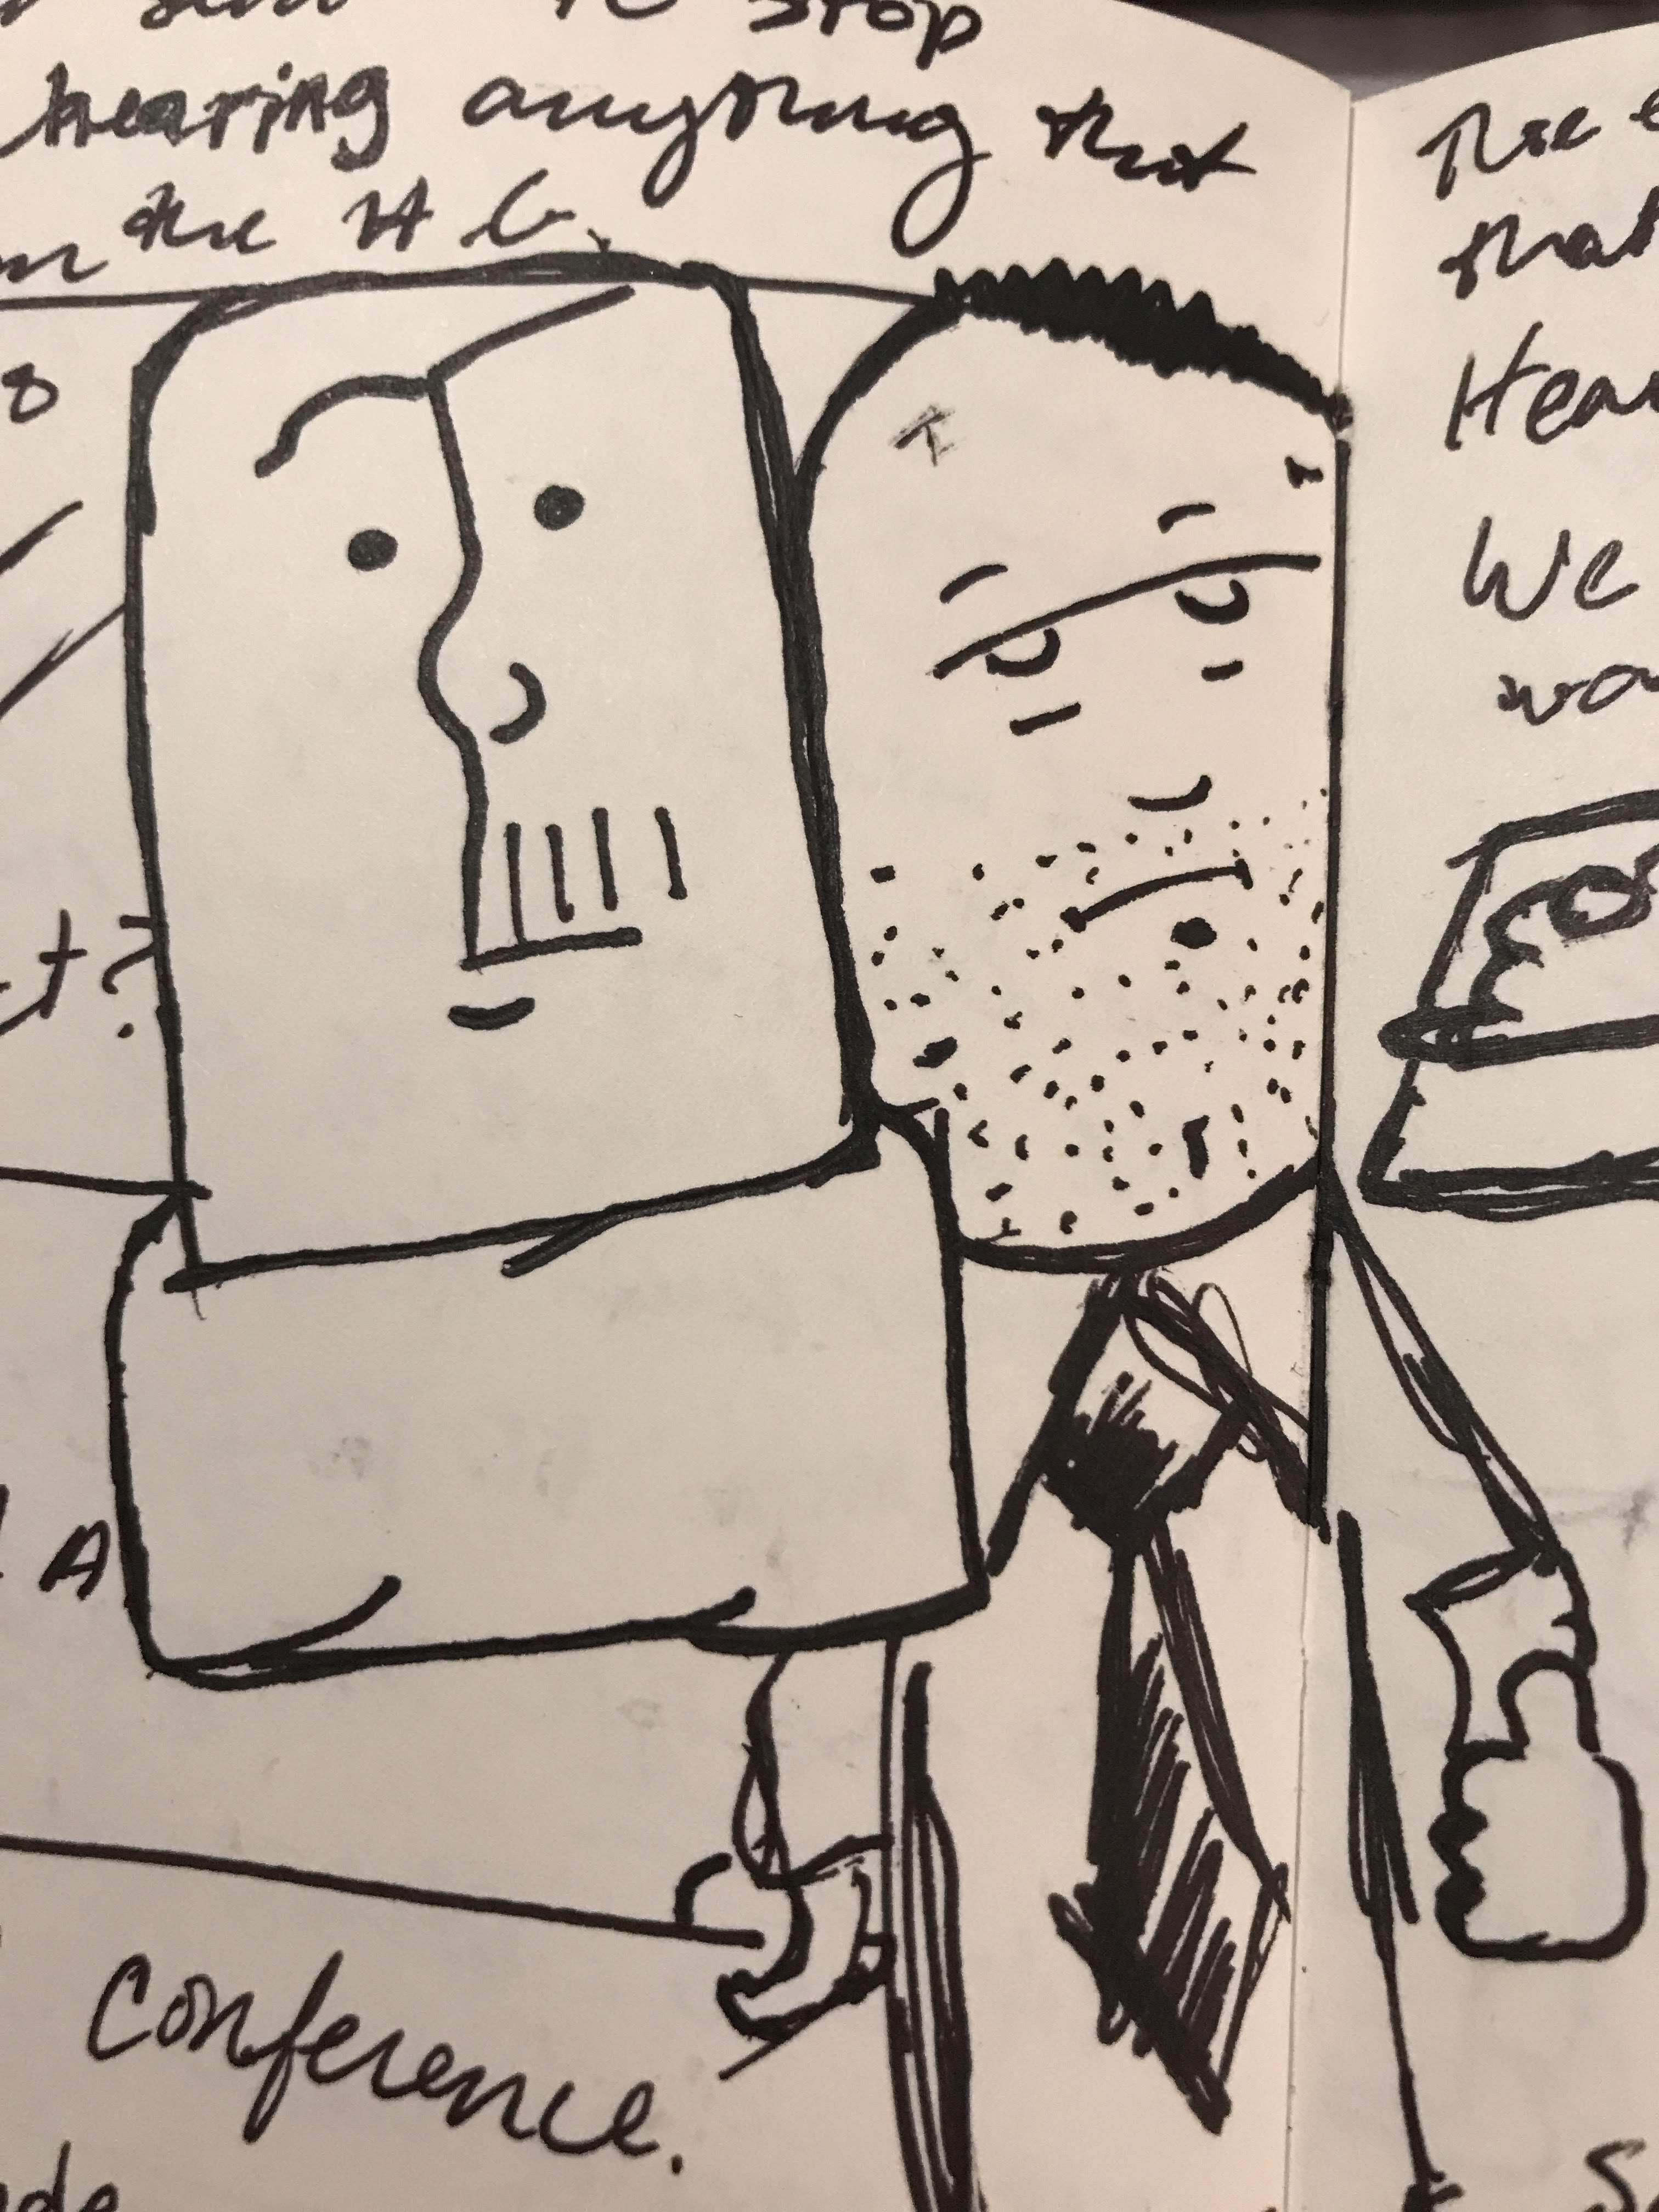 stop
hearing anything that
the H.C.
8
t?
A
Conference.
The
that
Hear
We
wo